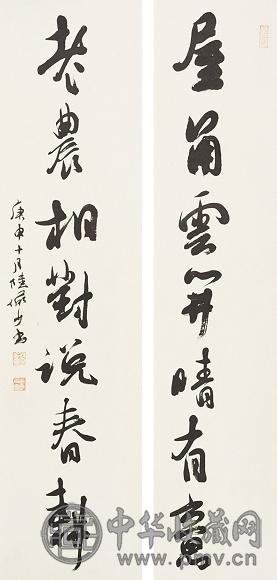 屋角雲開晴有
老農相對説春耕
庚申十月陸儼少書
中华收藏网
www.pmv.cn